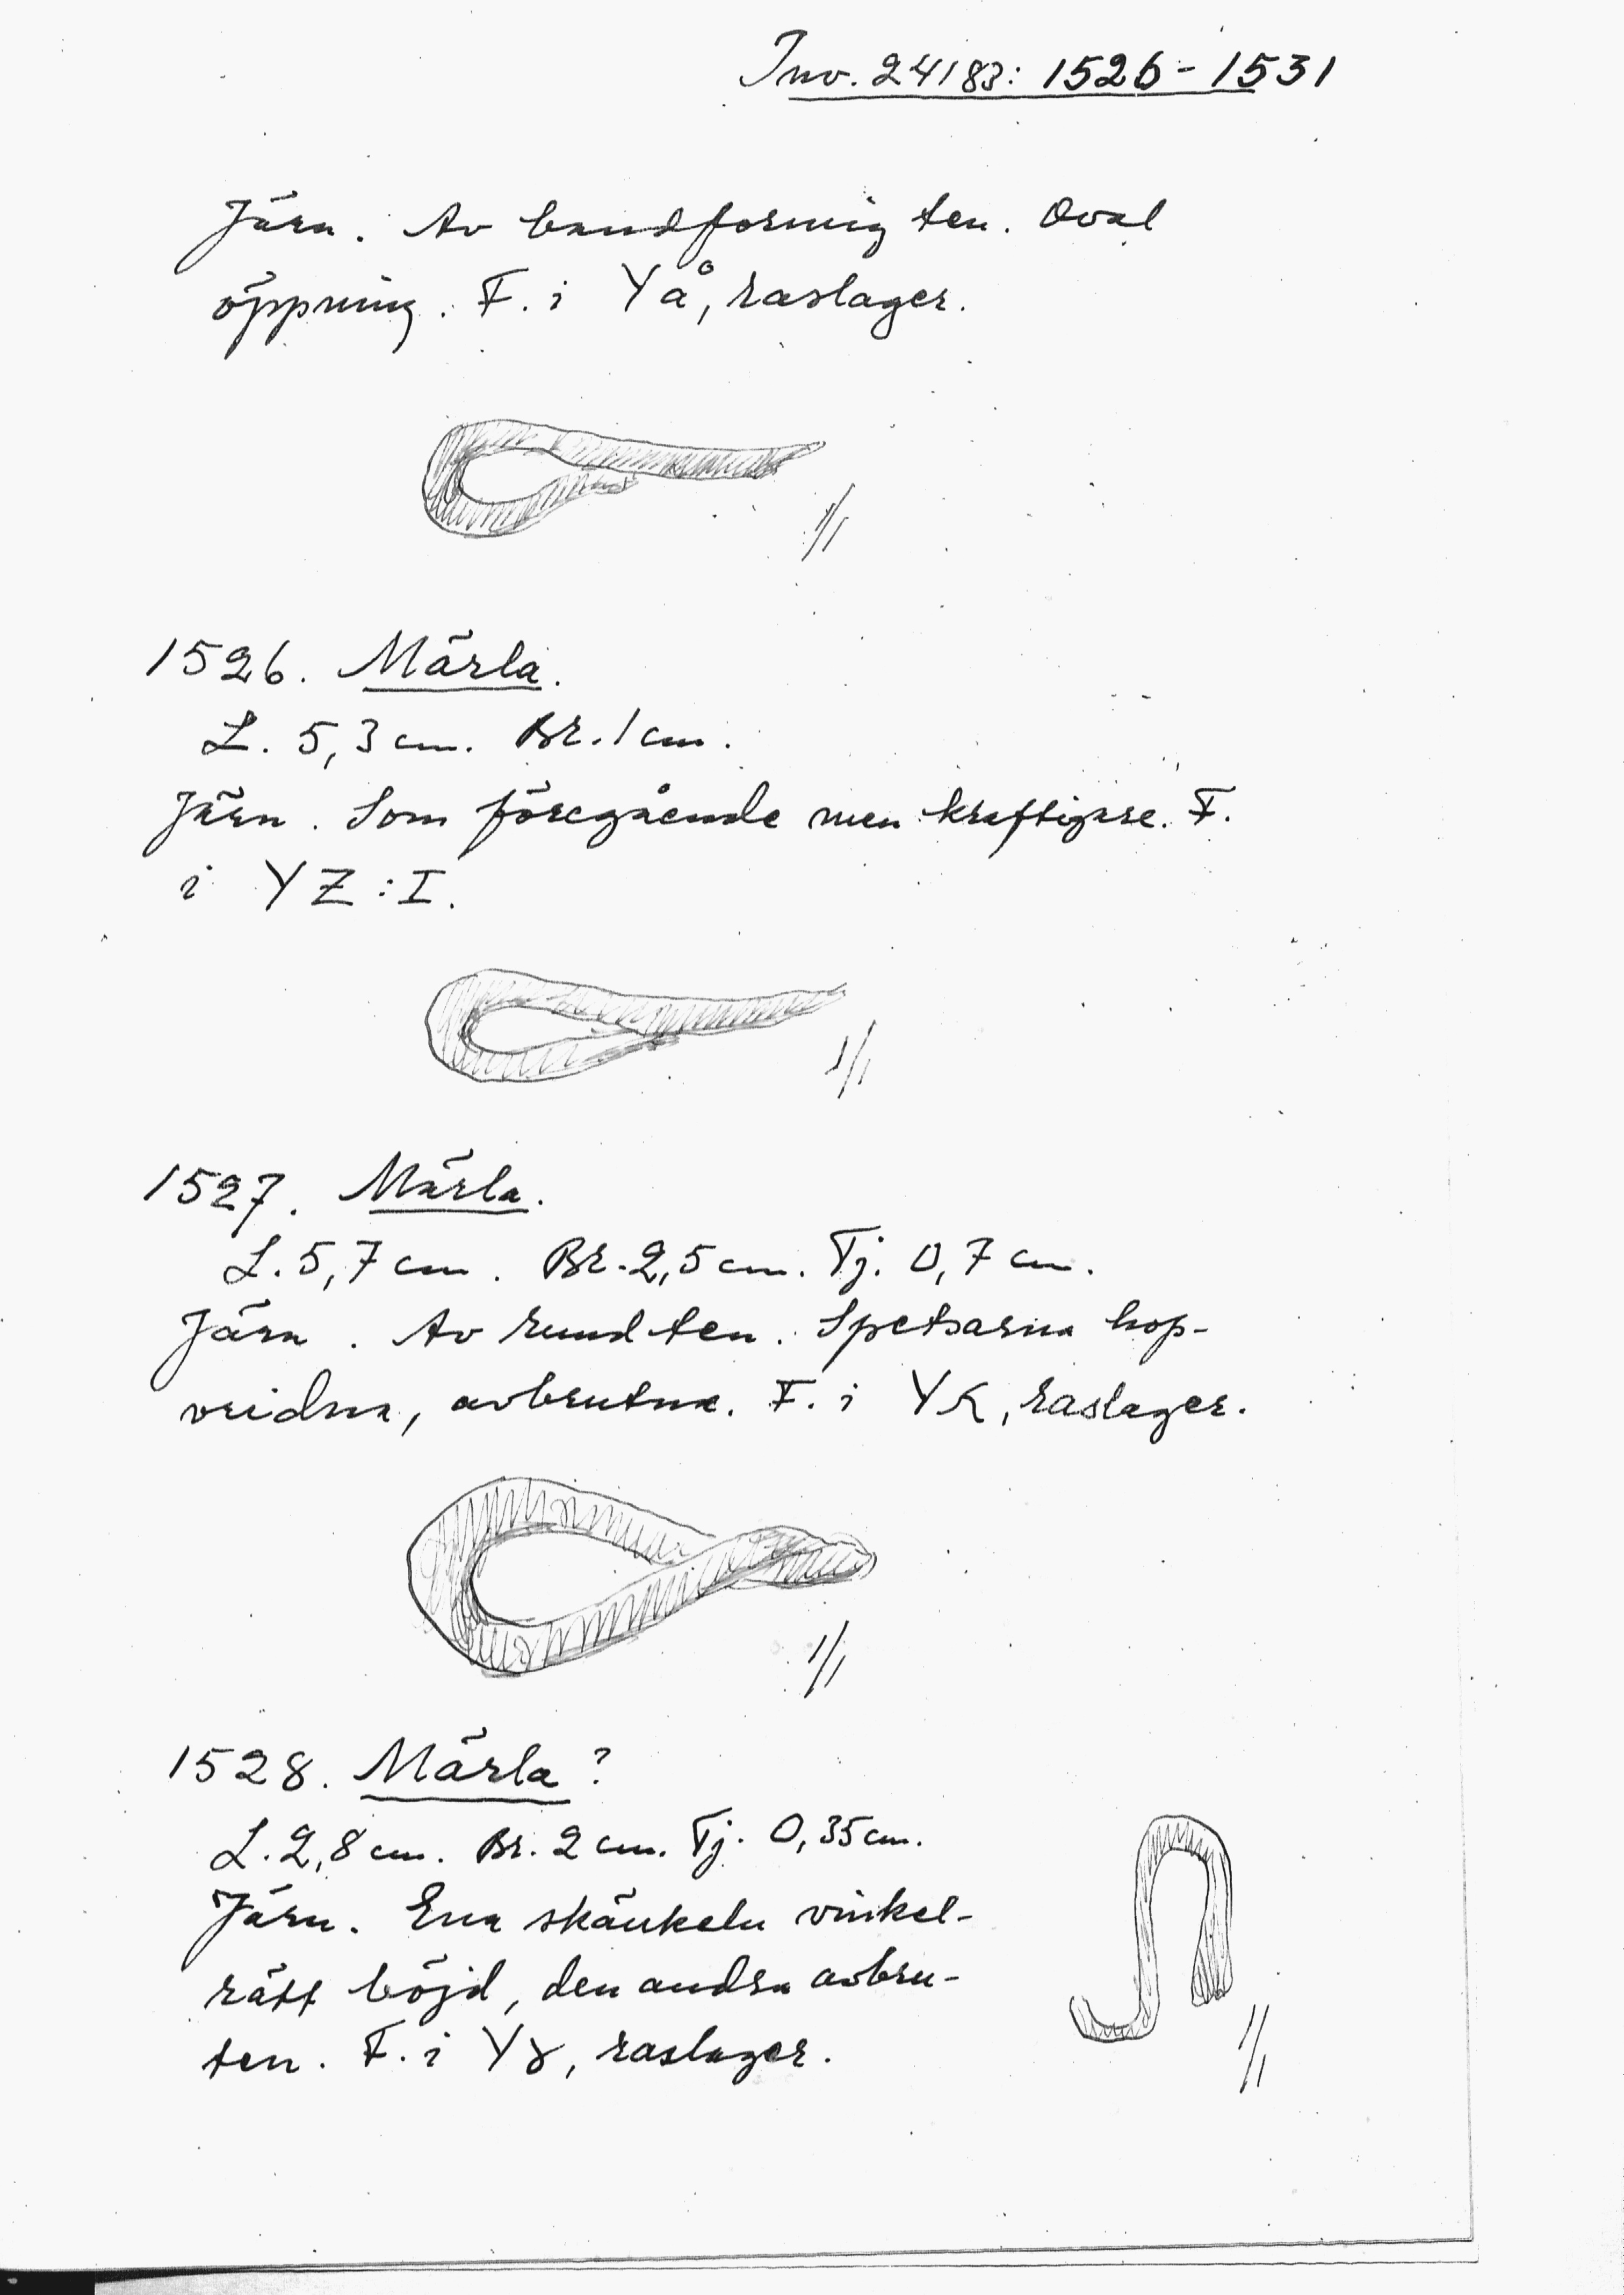 Inv. 24183: 1526-1531
Järn. Av bandformig ten. Oval
öppning. F. i Yå, raslager.
1/1
1526. Märla.
L. 5,3 cm. Br. 1 cm.
Järn. Som föregående men kraftigare. F.
i YZ:I.
1/1
1527. Märla.
L. 5,7 cm. Br. 2,5 cm. Tj. 0,7 cm.
Järn. Av rund ten. Spetsarna hop-
vridna, avbrutna. F. i YK, raslager.
1/1
1528. Märla?
L. 2,8 cm. Br. 2 cm. Tj. 0,35 cm.
Järn. Ena skänkeln vinkel-
rätt böjd, den andra avbru-
ten. F. i Yɣ, raslager.
1/1